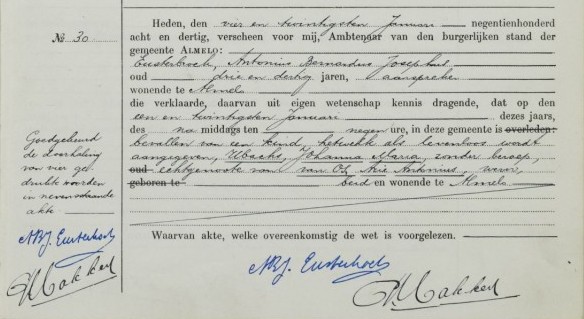 № 30
Heden, den vier en twintigsten Januari negentienhonderd
acht en dertig, verscheen voor mij, Ambtenaar van den burgerlijken stand der
gemeente ALMELO:
Eusterbroek, Antonius Bernardus Josephus
oud drie en dertig jaren, aanspreker
wonende te Almelo
die verklaarde, daarvan uit eigen wetenschap kennis dragende, dat op den
een en twintigsten Januari dezes jaars,
des na middags ten negen ure, in deze gemeente is overleden:
bevallen van een kind, hetwelk als levenloos wordt
aangegeven, Johanna Maria, zonder beroep,
oud echtgenoote van van Antonius, wever,
geboren te beid en wonende te Almelo
Waarvan akte, welke overeenkomstig de wet is voorgelezen.
Goedgekeurd
de doorhaling
van vier ge-
drukte woorden
in nevenstaande
akte